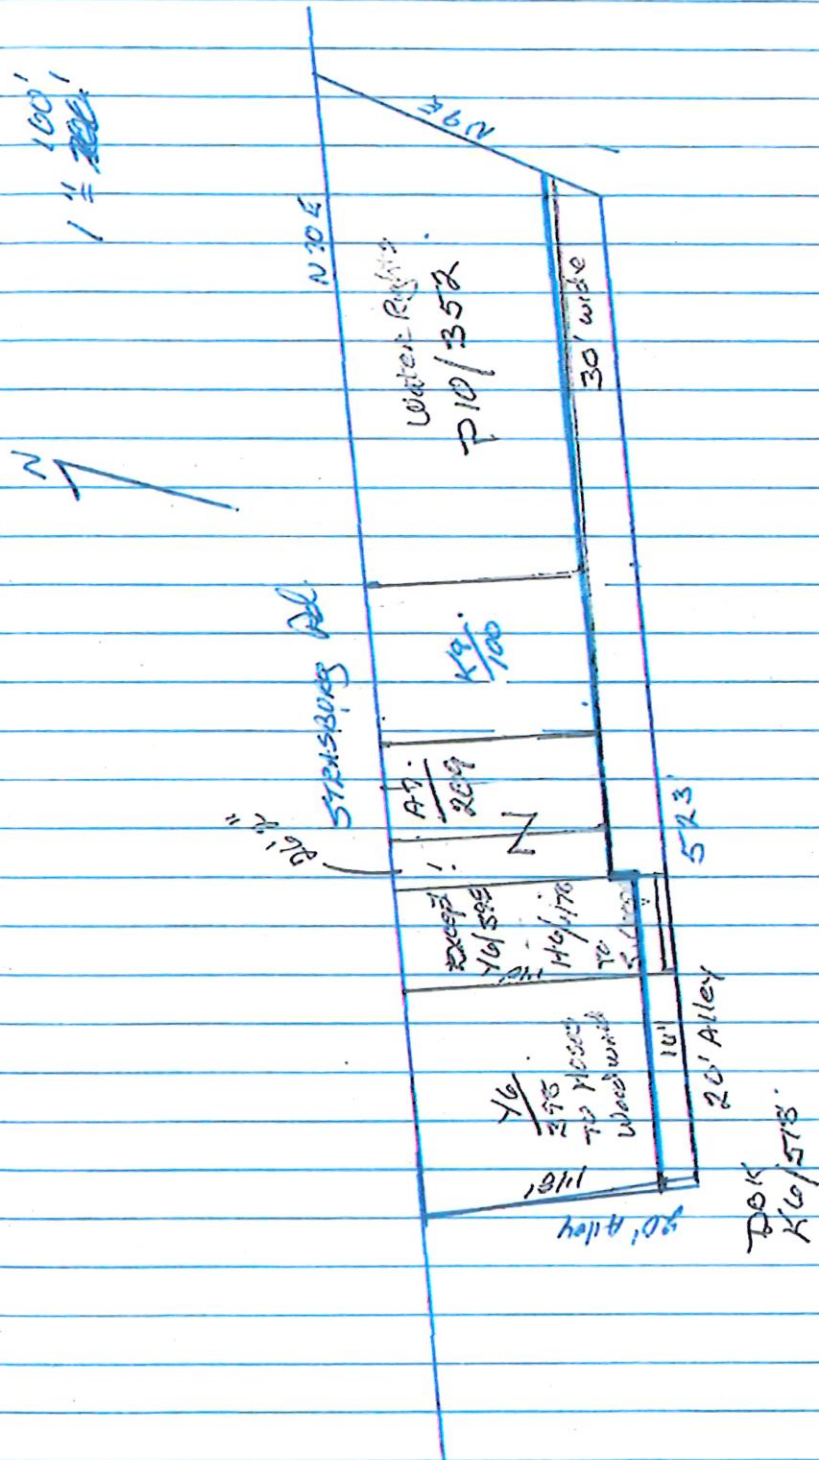 1" = 100'
N
N 70 E
N 9 E
STRASBURG Rd.
Water Rights
P10/352
30' wide
K9/100
A7/209
26' 2"
N
Except
Y6/395
H6/170
TO
Y6/395
TO Moses
Woodward
118'
10'
20' Alley
523'
20' Alley
DBK
K6/518